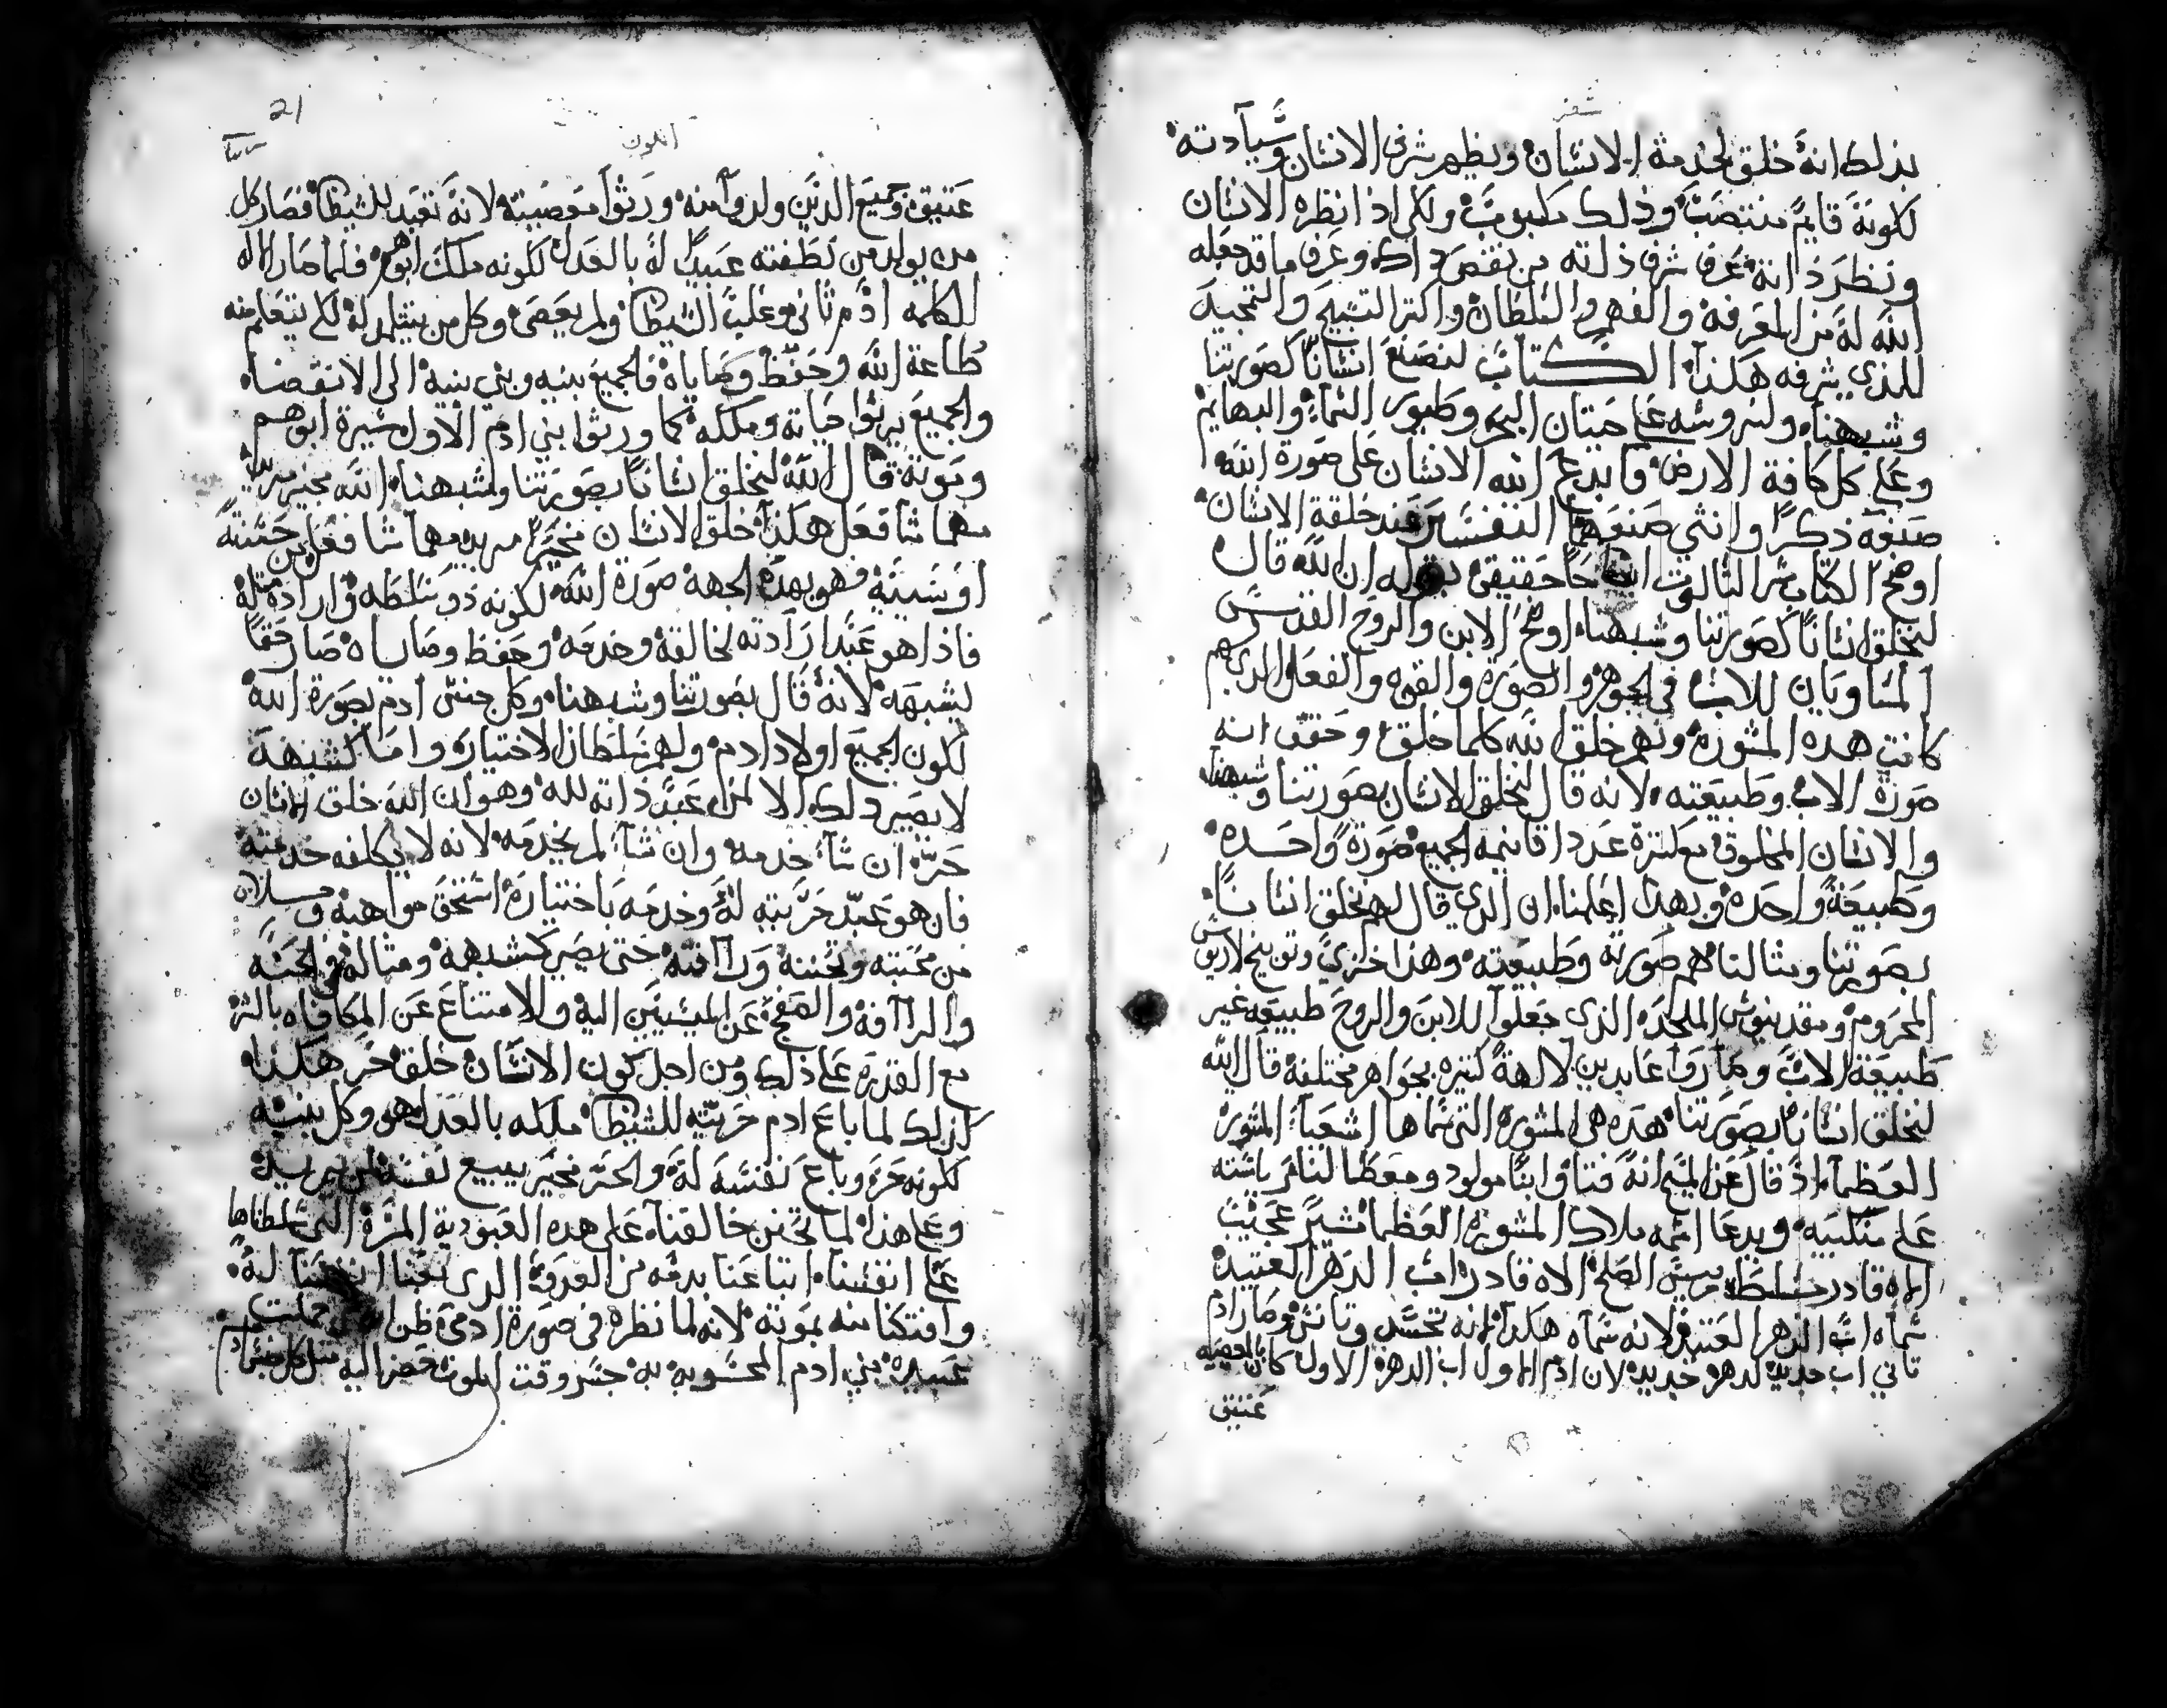 سفر
بذلك انه خلق لخدمة الانسان ويظهر شرف الانسان وسيادته
لكونة قايم منتصب وذلك مكبوب ولكي اذا نظره الانسان
ونظر ذاته عرف شرف ذاته من نقص ذاك وعرف ما قد جعله
الله له من المعرفه والفهم والسلطان واكتر التسبيح والتمجيد
للذي شرفه هكذا الكتاب لنصنع انسانًا كصورتنا
وشبهنا وليروسه على حيتان البحر وطيور السماء والبهايم
وعلى كل كافة الارض فابدع الله الانسان على صورة الله
صنعه ذكرًا وانثي صنعهما فعند خلقة الانسان
اوضح الكتاب سر الثالوت حقيقي بقوله ان الله قال
لنخلق انسانًا كصورتنا وشبهنا اوضح الابن والروح القدس
المساويان للاب في الجوهر والصورة والقوه والفعل الذي هم
كانت هده المشوره وبهم خلق الله كلما خلق وحقق انه
صورة الاب وطبيعته لانه قال لنخلق الانسان بصورتنا وشبهنا
والانسان المخلوق مع كترة عدد اقانيمه الجميع صورة واحده
وطبيعة واحده وبهدا اعلمنا ان الدي قال لهم نخلق انسانًا
بصورتنا ومثالنا هم صورته وطبيعته وهذا خزي وتوبيخ لاريوس
المحروم ومقدينوس الملحد الذي جعلوا للابن والروح طبيعه غير
طبيعة الاب وصاروا عابدين لالهة كتيره بجواهر مختلفه قال الله
لنخلق انسانًا بصورتنا هده هي المشوره التي سماها اشعيا المشوره
العظما اذ قال عن المسيح انه فتا وابنًا مولود ومعطا لنا رياسته
على منكبيه ويدعا اسمه ملاك المشوره العظما مشيرً عجيب
اله قادر مسلط رييس الصلح الاه قادر اب الدهر العتيد
سماه اب الدهر العتيد لانه سماه هكدا لانه تجسد وتانس وصار ادم
تاني اب جديد لدهر جديد لان ادم الاول اب الدهر الاول كان بالمعصيه
عتيق
21
التكوين
عتيق وجميع الذين ولدوا منه ورثوا معصيته لانه تعبد للشيطان فصار كل
من يولد من نطفته عبيدً له بالعدل لكونه ملك ابوهم فلما صار الاله
الكلمه ادم تاني وغلب الشيطان ولم يعصى وكل من يتلمد له لكي يتعلم منه
طاعة الله وحفظ وصاياه فالجميع بنيه وبني بنيه الى الانقضاه
والجميع يرثوا حياته وملكه كما ورثوا بني ادم الاول سيرة ابوهم
وموته قال الله لنخلق انسانًا بصورتنا ولشبهنا الله مخير مريد
مهما شا فعل هكذا خلق الانسان مخيرً مريد مهما شا فعل من حسنة
او سيية فهو بهذه الجهه صورة الله لكونه ذو سلطه وارادة مثله
فاذا هو عبد ارادته لخالقه وخدمه وحفظ وصاياه صار حقًا
يشبهه لانه قال بصورتنا وشبهنا وكل جنس ادم بصورة الله
لكون الجميع اولاد ادم ولهم سلطان الاختيار واما كشبهه
لا يصير دلك الا لمن عبد ذاته لله وهو ان الله خلق الانسان
حرّ ان شا خدمه وان شا لم يخدمه لانه لا يكلفه خدمته
فان هو عبد حريته له وخدمه باختياره استحق مواهبه
من محبته وتحننه وراافته حتى يصير كشبهه ومثاله في المحبه
والراافه والصفح عن المسييين اليه والامتناع عن المكافاه بالشر
مع القدره على ذلك ومن اجل كون الانسان خلق حر هكذا
كذلك لما باع ادم حريته للشيطان ملكه بالعدل هو وكل بنيه
لكونه حر وباع نفسه له والحر مخير يبيع نفسه لمن يريد
وعلى هذا لما تحنن خالقنا على هده العبودية المرة التي سلطناها
على انفسنا ابتاعنا بدمه من العدو الدي بعنا انفسنا له
وافتكنا منه بموته لانه لما نظره في صورة ادمي ظن انه من جملت
عبيده بني ادم المحسوبه به جسر وقت الموت حضر اليه مثل كل بني ادم